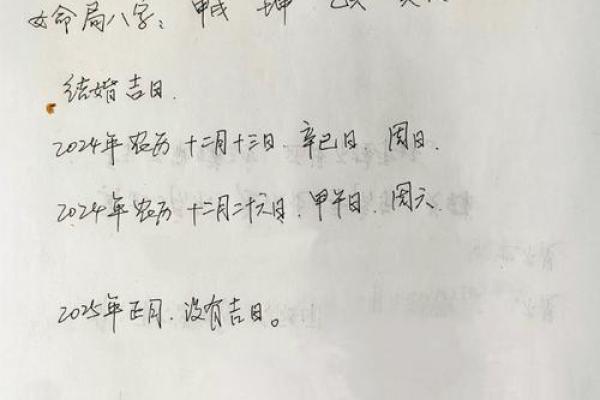 女命局八字：甲戌
结婚吉日.
2024年农历 十二月十三日. 辛巳日. 周日.
2024年农历 十二月二十六日. 甲午日. 周六.
2025年正月. 没有吉日。